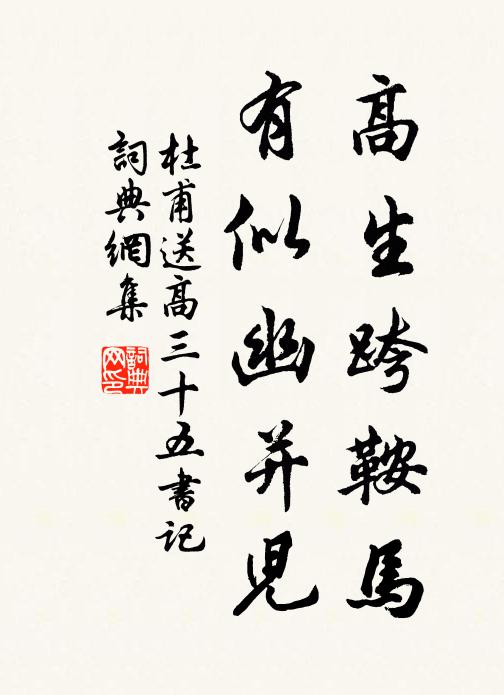 高生跨鞍馬
有似幽并児
杜甫送高三十五書记
詞典網集
詞典
网印